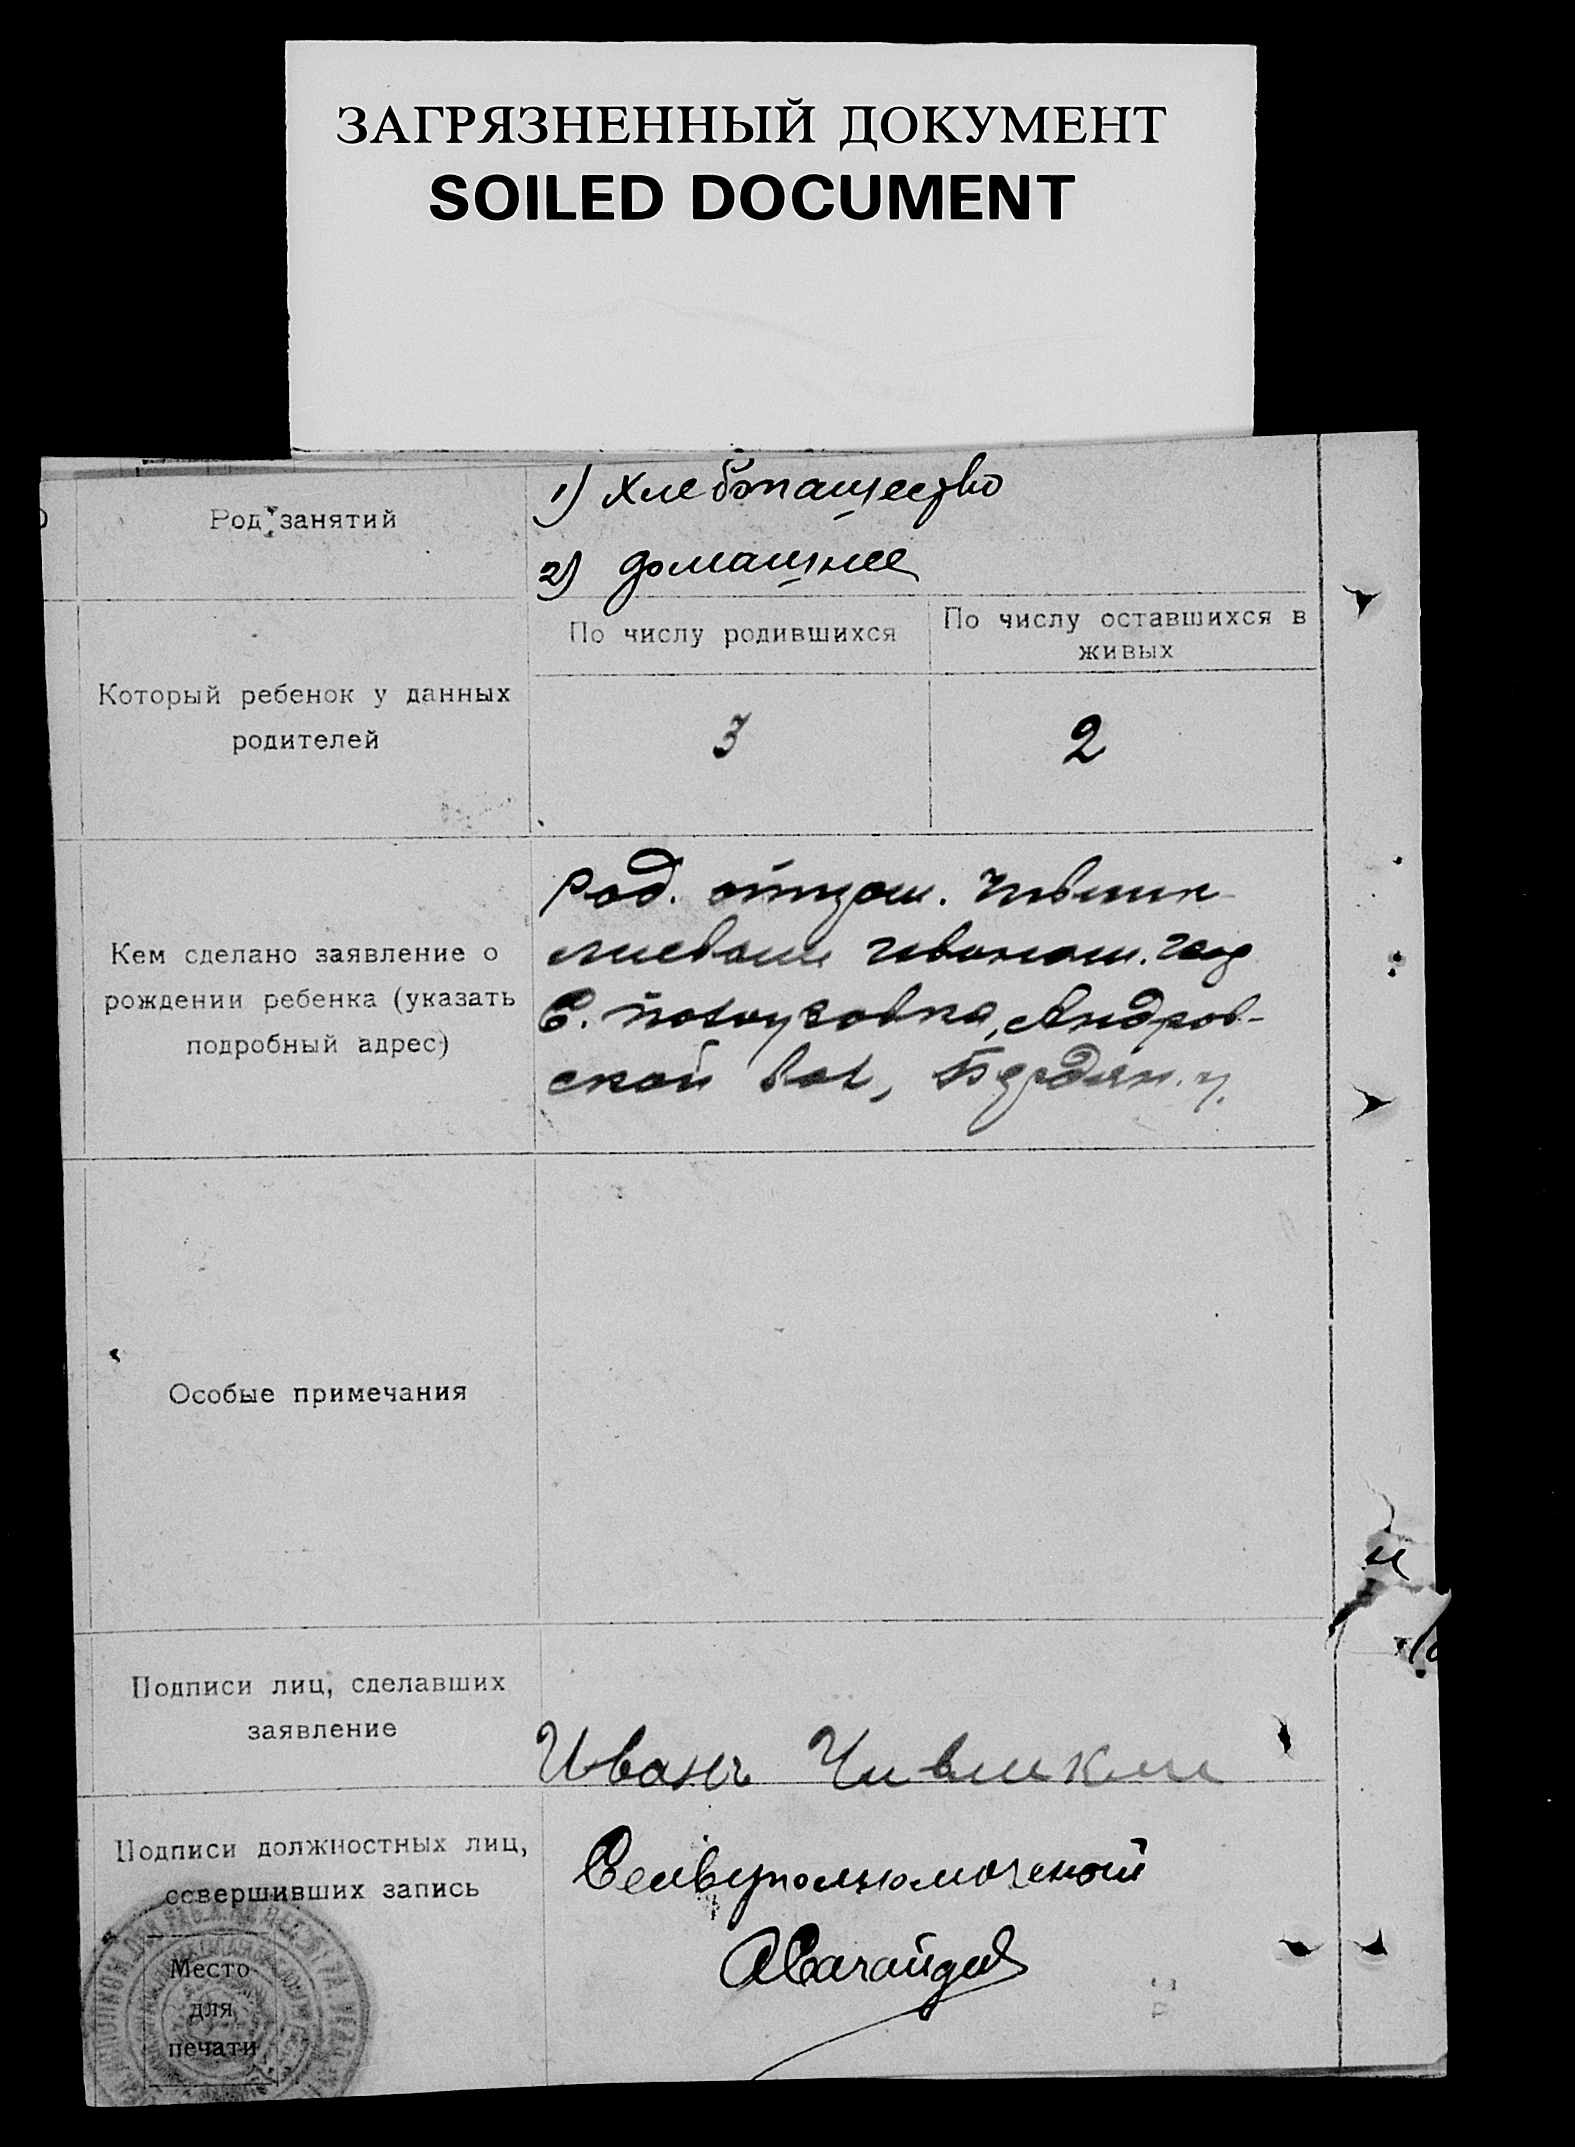 ЗАГРЯЗНЕННЫЙ ДОКУМЕНТ
SOILED DOCUMENT
Род занятий
1) Хлебопашество
2) домашнее
Который ребенок у данных
родителей
По числу родившихся
По числу оставшихся в
живых
3
2
Кем сделано заявление о
рождении ребенка (указать
подробный адрес)
Род. отцом.
Иваном.
С. Полоузовка, Андров-
ской вол, Бердян. у.
Особые примечания
Подписи лиц, сделавших
заявление
Иванъ Чивликли
Подписи должностных лиц,
совершивших запись
Сельуполномоченый
Место
для
печати